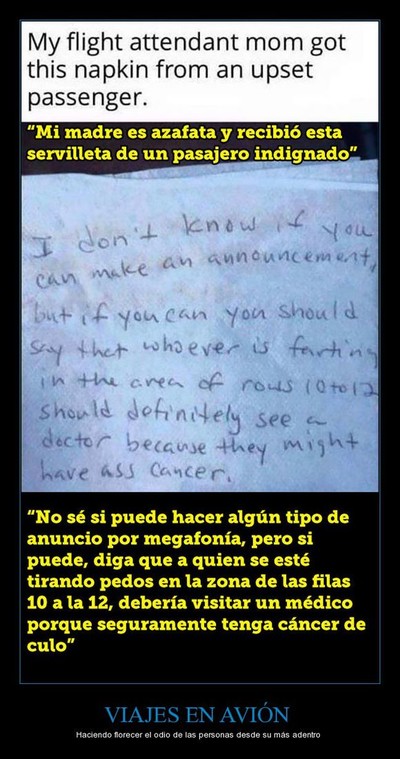 My flight attendant mom got
this napkin from an upset
passenger.
“Mi madre es azafata y recibió esta
servilleta de un pasajero indignado”
I don't know if you
can make an announcement,
but if you can you should
say that whoever is farting
in the area of rows 10 to 12
should definitely see a
doctor because they might
have ass cancer.
“No sé si puede hacer algún tipo de
anuncio por megafonía, pero si
puede, diga que a quien se esté
tirando pedos en la zona de las filas
10 a la 12, debería visitar un médico
porque seguramente tenga cáncer de
culo”
VIAJES EN AVIÓN
Haciendo florecer el odio de las personas desde su más adentro